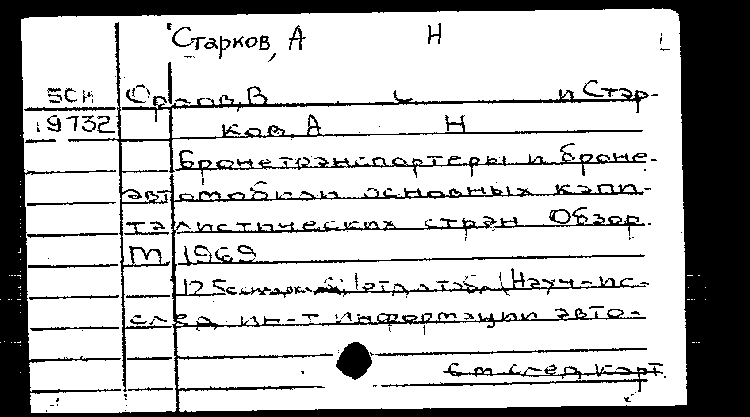 Старков, А Н
5СН Орлов, В С и Стар-
19732 ков, А Н
Бронетранспортеры и броне-
автомобили основных капи-
талистических стран Обзор.
М 1969
125с отд л табл (Науч-ис-
след ин-т информации авто-
См след карт.